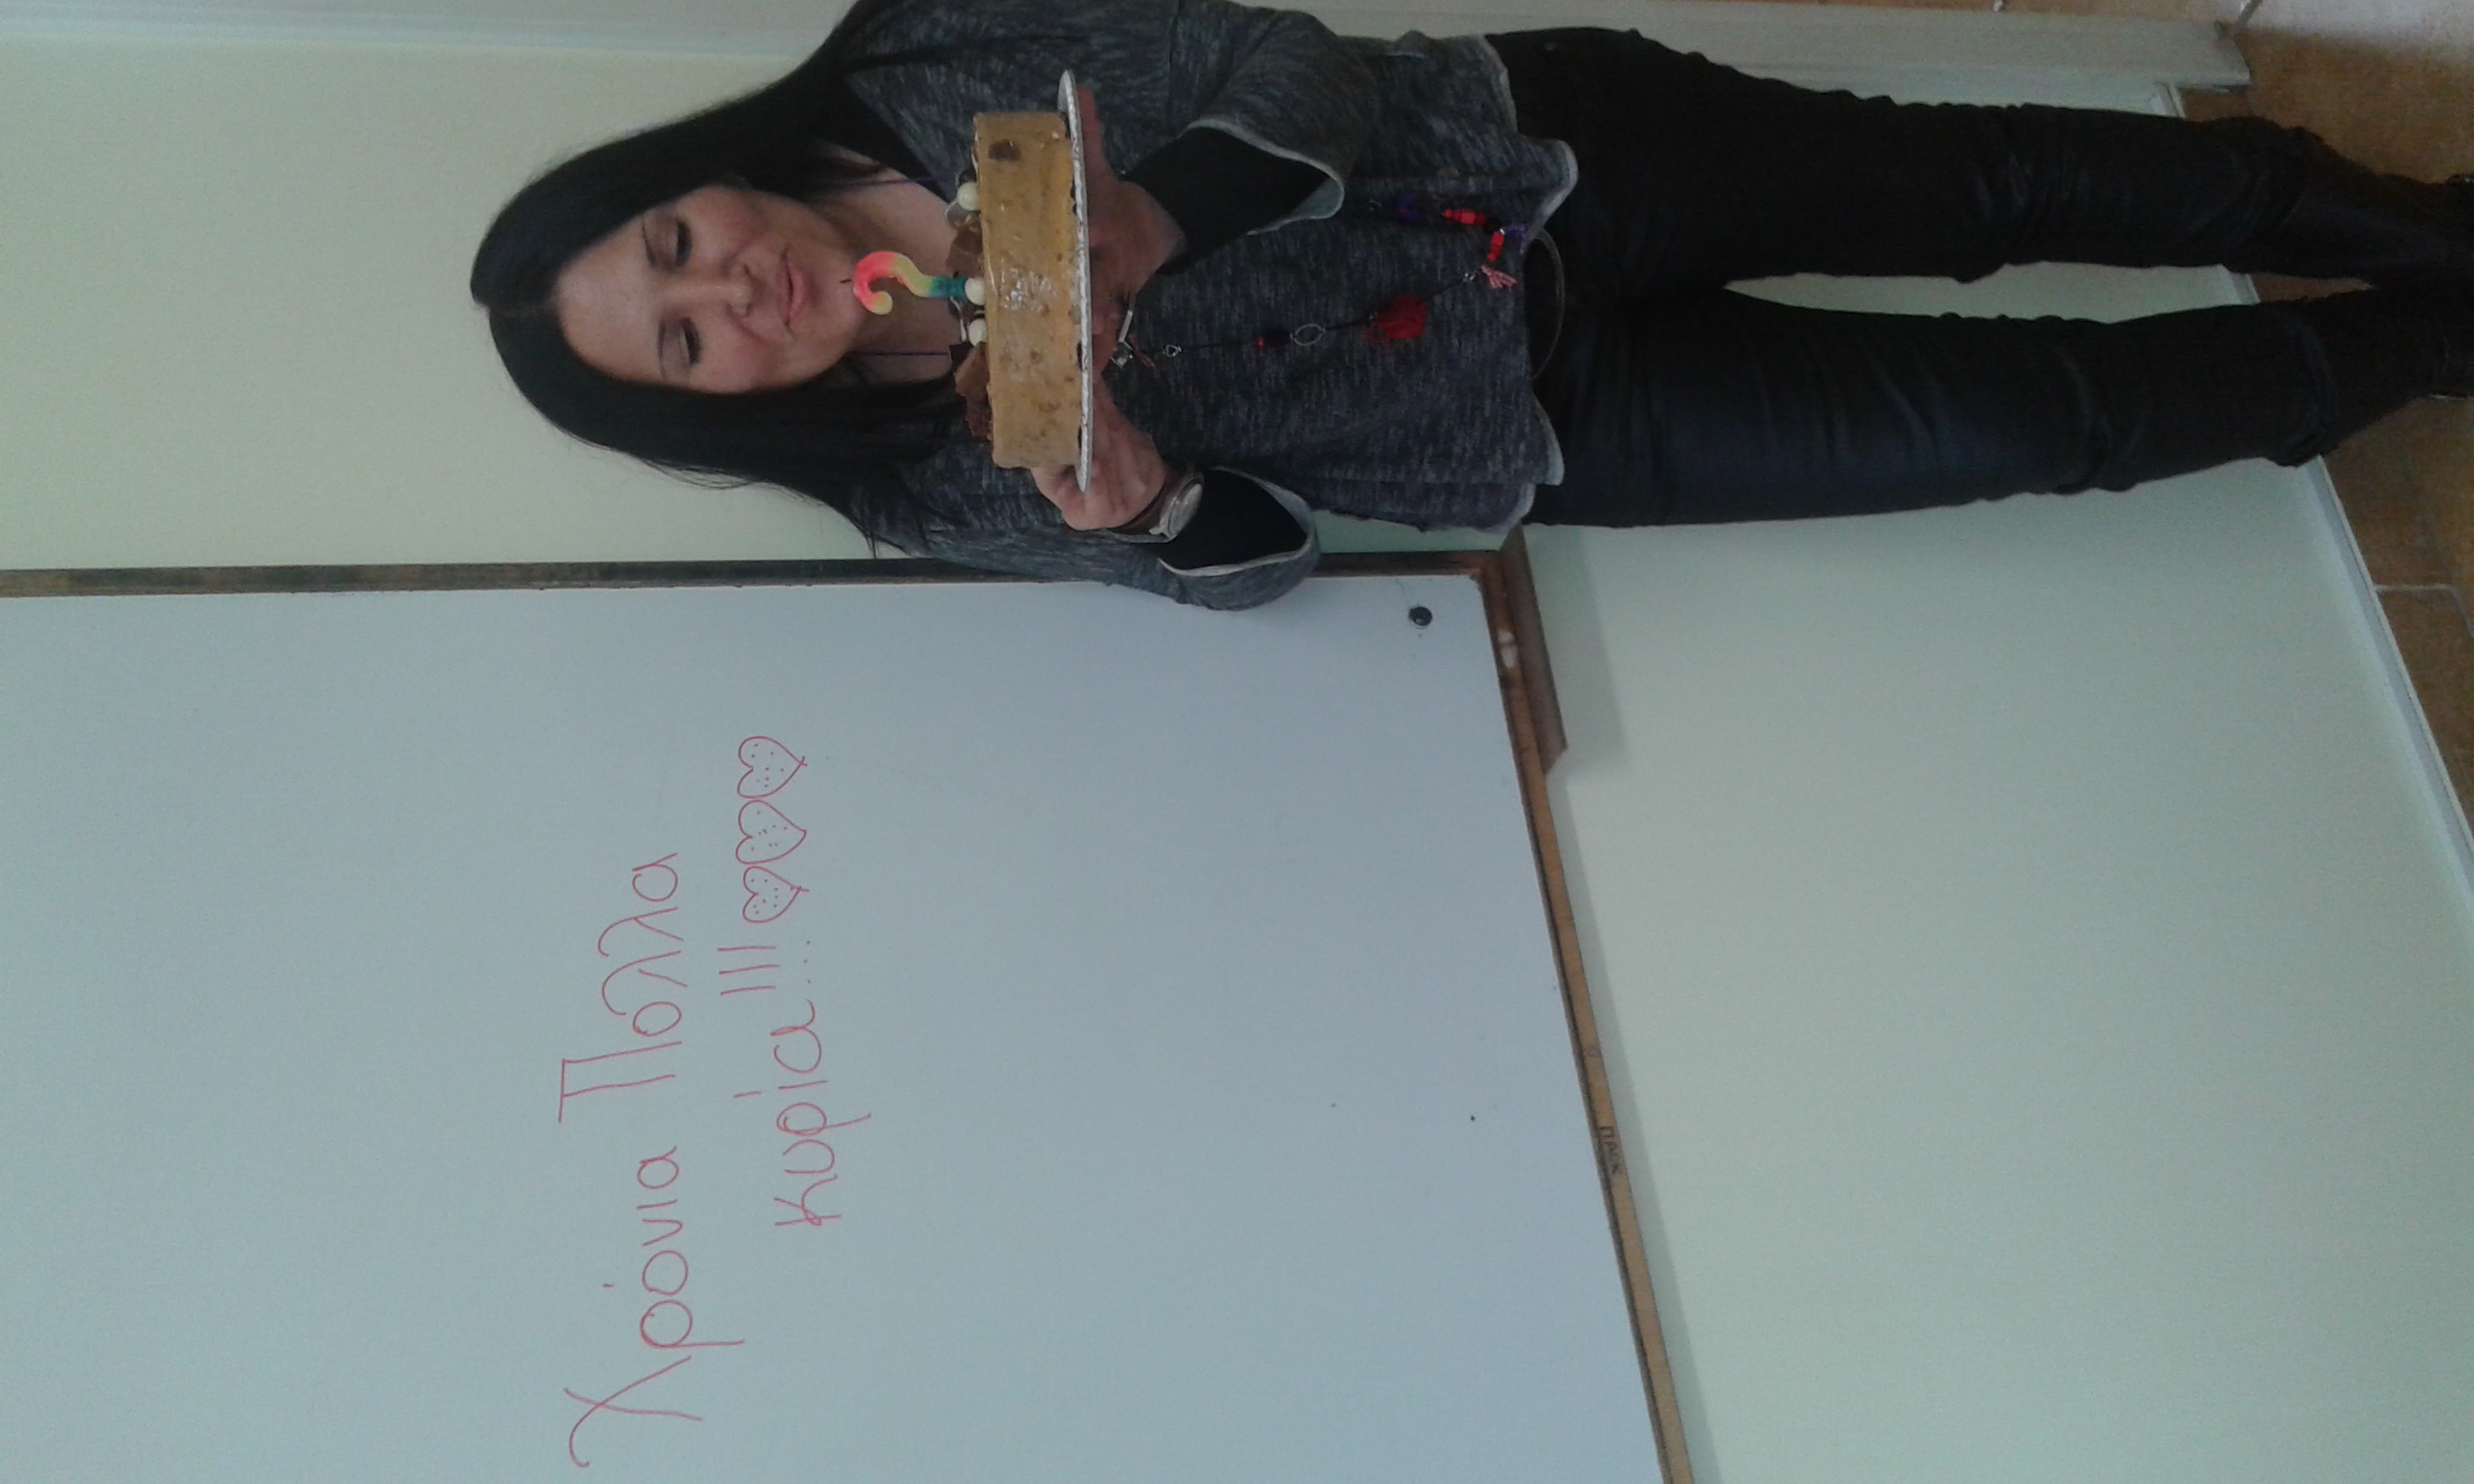 Χρόνια Πολλα
κυρία!!!♡♡♡
?